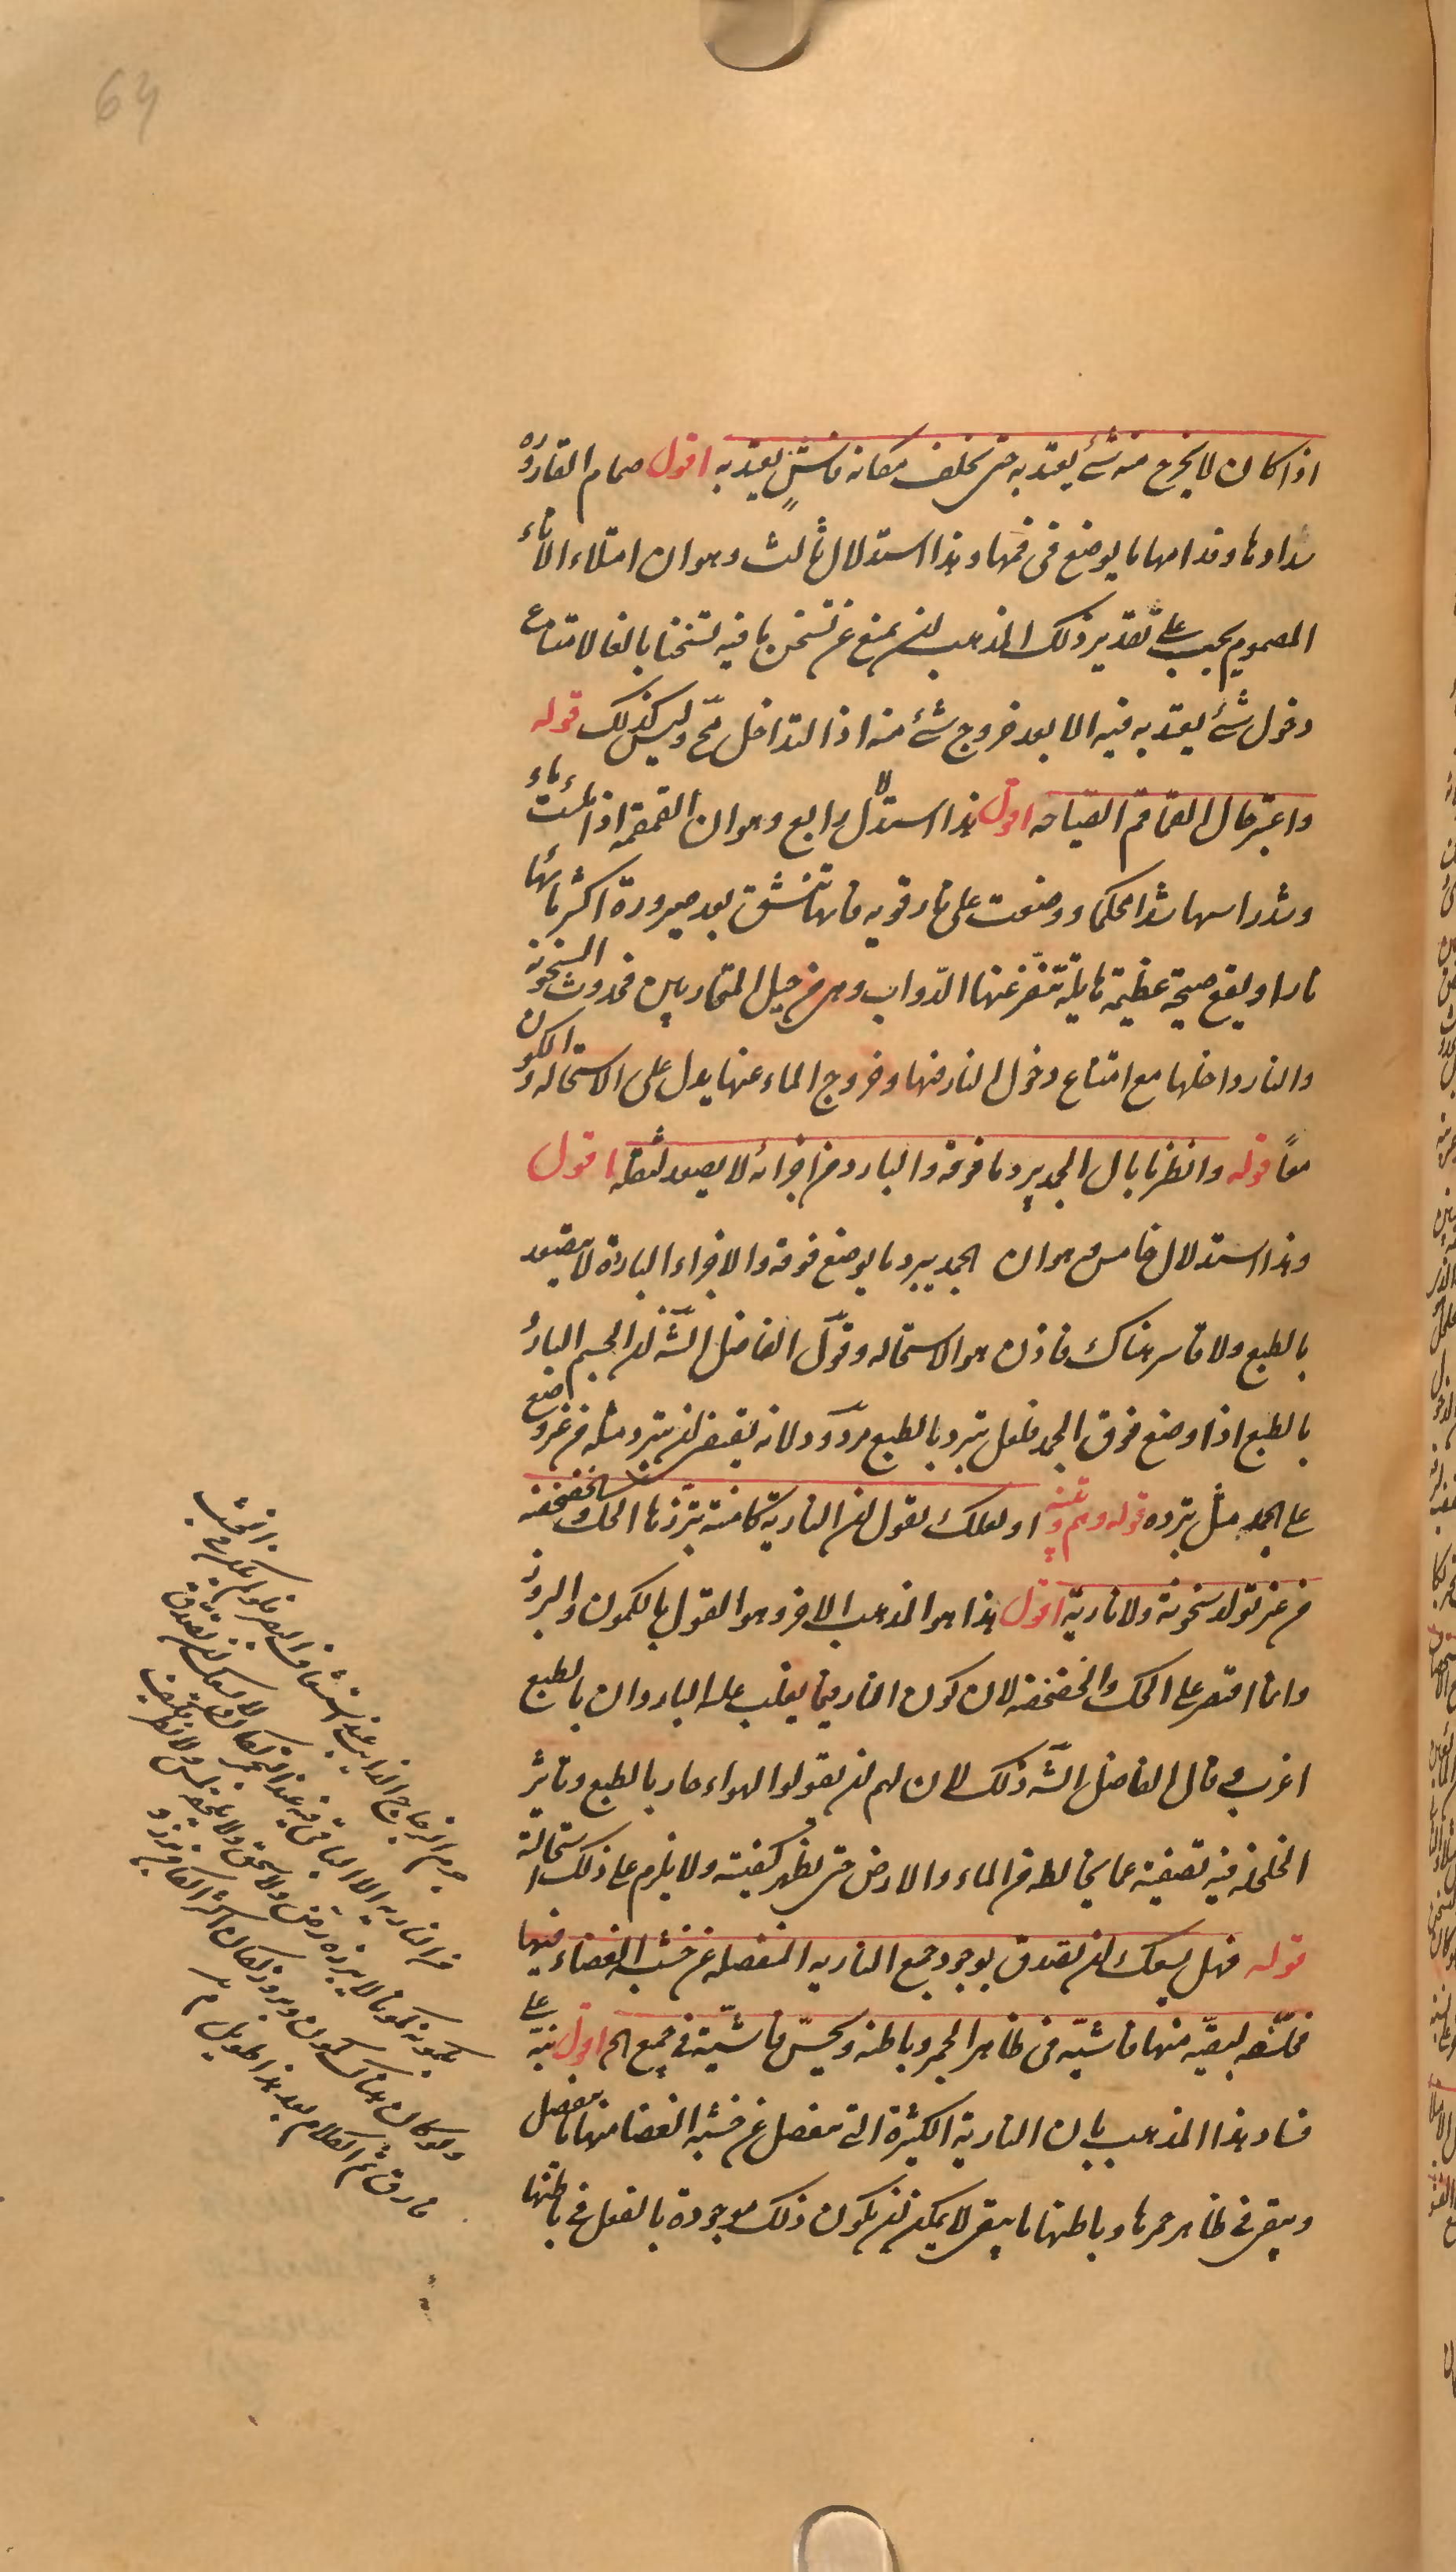 64
اذا كان لا يخرج منه شئ يعتد به حتى يخلف مكانه فاش يعتد به اقول صمام القارورة
سدادها وفدامها ما يوضع فى فمها وهذا استدلال ثالث وهو ان امتلاء الاناء
المصموم يجب على تقدير ذلك المذهب ان يمنع عن تسخن ما فيه تسخنا بالغا لامتناع
دخول شئ يعتد به فيه الا بعد خروج شئ منه اذ التداخل مح وليس كذلك قوله
واعتبر حال القماقم الصياحه اقول هذا استدلال رابع وهو ان القمقمة اذا ملئت ماء
وشد راسها شدا محكما ووضعت على نار قويه فانها تنشق بعد صيرورة اكثر مائها
نارا ويقع صيحة عظيمة هايلة تنفر عنها الدواب وهى من حيل المتحاربين فحدوث السخونه
والنار داخلها مع امتناع دخول النار فيها وخروج الماء عنها يدل على الاستحاله والكون
معا قوله وانظر ما بال الجمد يبرد ما فوقه والبارد من اجزائه لا يصعد لثقله اقول
وهذا استدلال خامس وهو ان الجمد يبرد ما يوضع فوقه والاجزاء الباردة لا يتصعد
بالطبع ولا قاسر هناك فاذن هو الاستحاله وقول الفاضل الشه ان الجسم البارد
بالطبع اذا وضع فوق الجمد فلعل تبرد بالطبع مردود لانه يقتضى ان تبرد مثله من غير وضع
على الجمد مثل تبرده قوله وهم وتنبيه او لعلك تقول ان النارية كامنة تبرزها الحك والخضخضه
من غير تولد سخونة ولا نارية اقول هذا هو المذهب الاخر وهو القول بالكمون والبروز
وانما اقتصر على الحك والخضخضه لان كون النار فيما يغلب عليه الباردان بالطبع
اغرب وقال الفاضل الشه ذلك لان لهم ان يقولوا الهواء حار بالطبع وتاثير
الخلخله فيه تصفيته عما يخالطه من الماء والارض حتى يظهر كيفيته ولا يلزم على ذلك استحالة
قوله فهل يسعك ان تصدق بوجود جمع الناريه المنفصله عن خشبه الغضاء فيها
مخلفه لبقيه منها فاشيه فى ظاهر الجمر وباطنه ويحس فاشية فى جميع الجرم اقول نبه على
فساد هذا المذهب بان النارية الكثيرة التى تنفصل عن خشبة الغضا منها ما ينفصل
ويبقى فى ظاهر جمرها وباطنها ما يبقى لا يمكن ان يكون ذلك موجودة بالفعل فى باطنها
جرم الزجاج الذايب
من الناريه الا الباقى فيه عند التجمر لكان لا يسعك ان تصدق
بكمونه كمونا لا يبرزه رض ولا سحق ولا يلحقه لمس ولا نظر
ولو كان هناك كمون وبروز لكان اكثر الكامن برز و
فارق ثم الكلام بعد هذا طويل